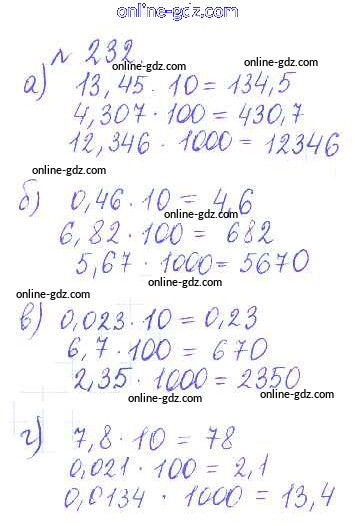 online-gdz.com
№ 232.
online-gdz.com
а) 13,45 · 10 = 134,5
online-gdz.com
4,307 · 100 = 430,7
online-gdz.com
12,346 · 1000 = 12346
online-gdz.com
б) 0,46 · 10 = 4,6
online-gdz.com
6,82 · 100 = 682
online-gdz.com
5,67 · 1000 = 5670
online-gdz.com
в) 0,023 · 10 = 0,23
online-gdz.com
6,7 · 100 = 670
online-gdz.com
2,35 · 1000 = 2350
online-gdz.com
online-gdz.com
г) 7,8 · 10 = 78
online-gdz.com
0,021 · 100 = 2,1
online-gdz.com
0,0134 · 1000 = 13,4
online-gdz.com